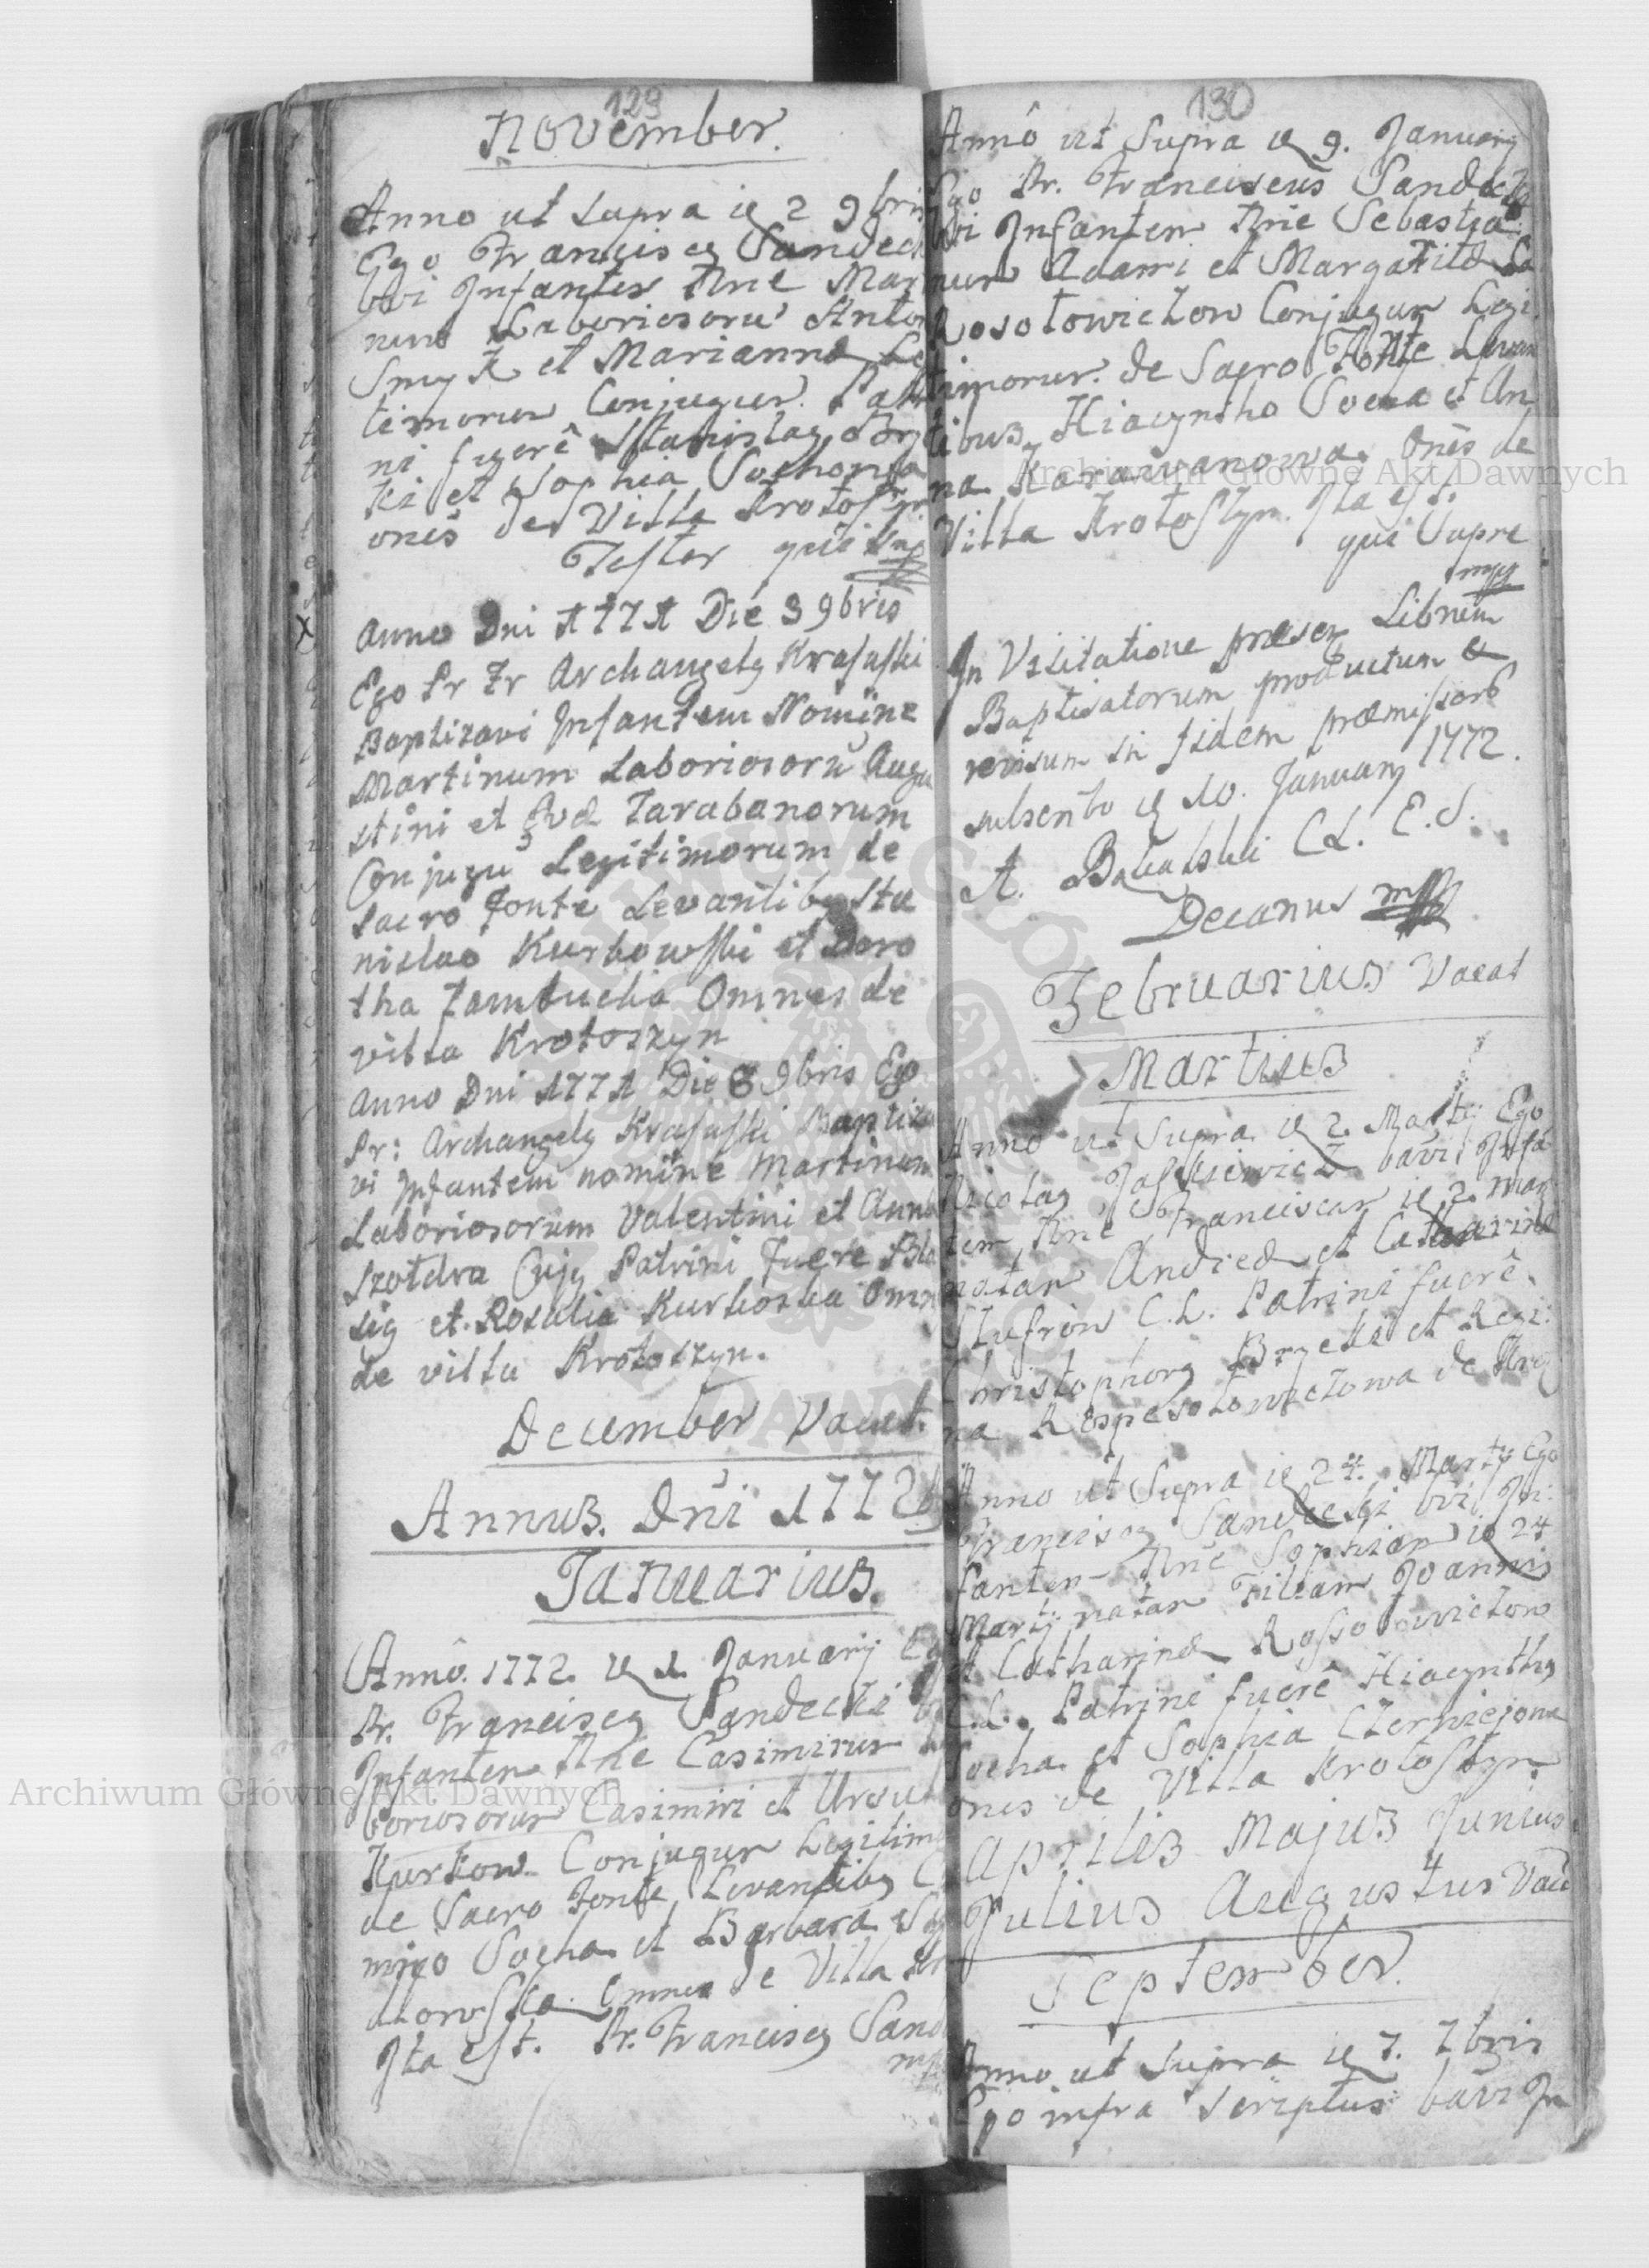 129
November.
Anno ut supra ie 2 9bris
Ego Franciscg Sandec
bvi Infantem Nne Mar
num Laboriosoru Anto
Smyk et Marianna Le
timorum Conjugum. Patri
ni fuerê Stanislag Bry
ki et Sophia Sochonia
onēs de Villa Krotoszyn
Testor qui sup
Anno Dni 1771 Die 3 9bris
Ego Pr Fr Archangelg Krasuski
Baptizavi Infantem Nomine
Martinum Laboriosorū Augu
stini et Evæ Tarabanorum
Conjugū Legitimorum de
Sacro Fonte Levantibg Sta
nislao Kurkowski et Doro
tha Zambucha Omnes de
villa Krotoszyn
Anno Dni 1771 Die 8 9bris Ego
Pr: Archangelg Krasuski Baptiza
vi Infantem nomine Martinum
Laboriosorum Valentini et Annæ
Szotdra Cujg Patrini Fuere Bla
sig et Rosalia Kurkoska Omn
de villa Krotoszyn.
December Vacat.
Annus. Dni 1772
Januarius.
Annô. 1772. ie 1. January Eg
Pr. Franciscg Sandecki
Infantem Nne Casimirum
boriosorum Casimiri et Ursul
Kurkow Conjugum Legitimo
de Sacro Fonte Levantibg C
miro Socha et Barbara
Omnes de Villa Kr
Ita est. Pr. Franciscg Sand
mp
130
Annô ut Supra ie 9. January
Ego Pr. Franciscus Sandecki
bvi Infantem Nne Sebastia
num Adami et Margaritæ La
Rosołowiczow Conjugum Legi
timorum. de Sacro Fonte Levan
tibus Hiacyntho Socha et An
na Karawanowa. Onēs de
Villa Krotoszyn. Ita est.
qui Supra
mpp
In Visitatione præsen Librum
Baptisatorum productum &
revisum in fidem præmissorb
subscribo ie 10. January 1772.
A. Bakalski C L. E. S.
Decanus mpp
Februarius Vacat
Martius
Anno ut Supra ie 2. Martij Ego
Nicolag Jaśkiewicz bavi Infa
tem Nne Franciscam ie 2 mar
natam Andreæ et Catharinæ
Szufron C. L. Patrini fuerê
Christophorg Brycki et Regi
na Rospesołowiczowa de Kro
Anno ut Supra ie 24. Martij Ego
Franciscg Sandecki bvi In
fantem Nne Sophiam ie 24
Martij natam Filiam Joannis
et Catharinæ Rossołowiczow
C.L. Patrini fuerê Hiacynthg
Socha et Sophia Czerwiejowa
onēs de Villa Krotoszyn
Aprilis Majus Junius
Julius Augustus Vacā
September.
Anno ut Supra ie 7. 7bris
Ego infra scriptus bavi In
Archiwum Główne Akt Dawnych
Archiwum Główne Akt Dawnych